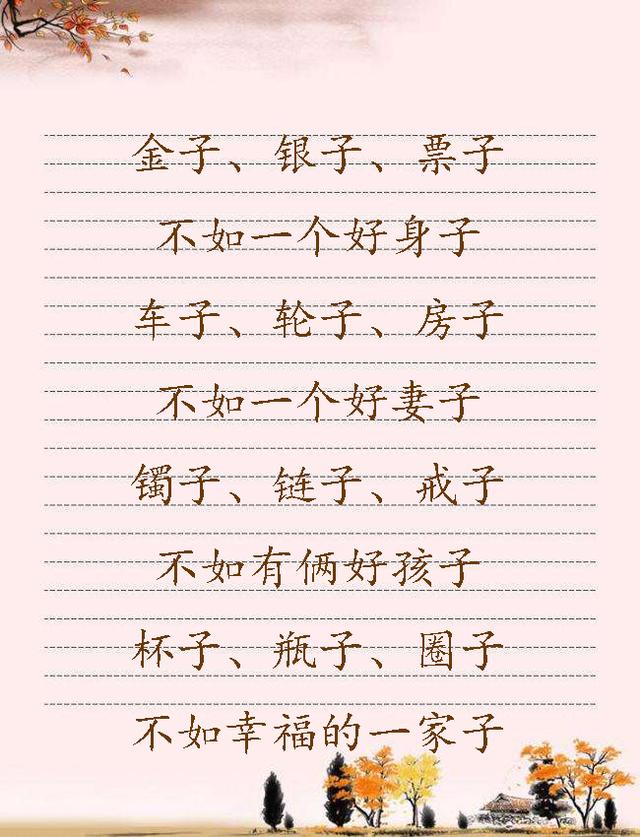 金子、银子、票子
不如一个好身子
车子、轮子、房子
不如一个好妻子
镯子、链子、戒子
不如有俩好孩子
杯子、瓶子、圈子
不如幸福的一家子